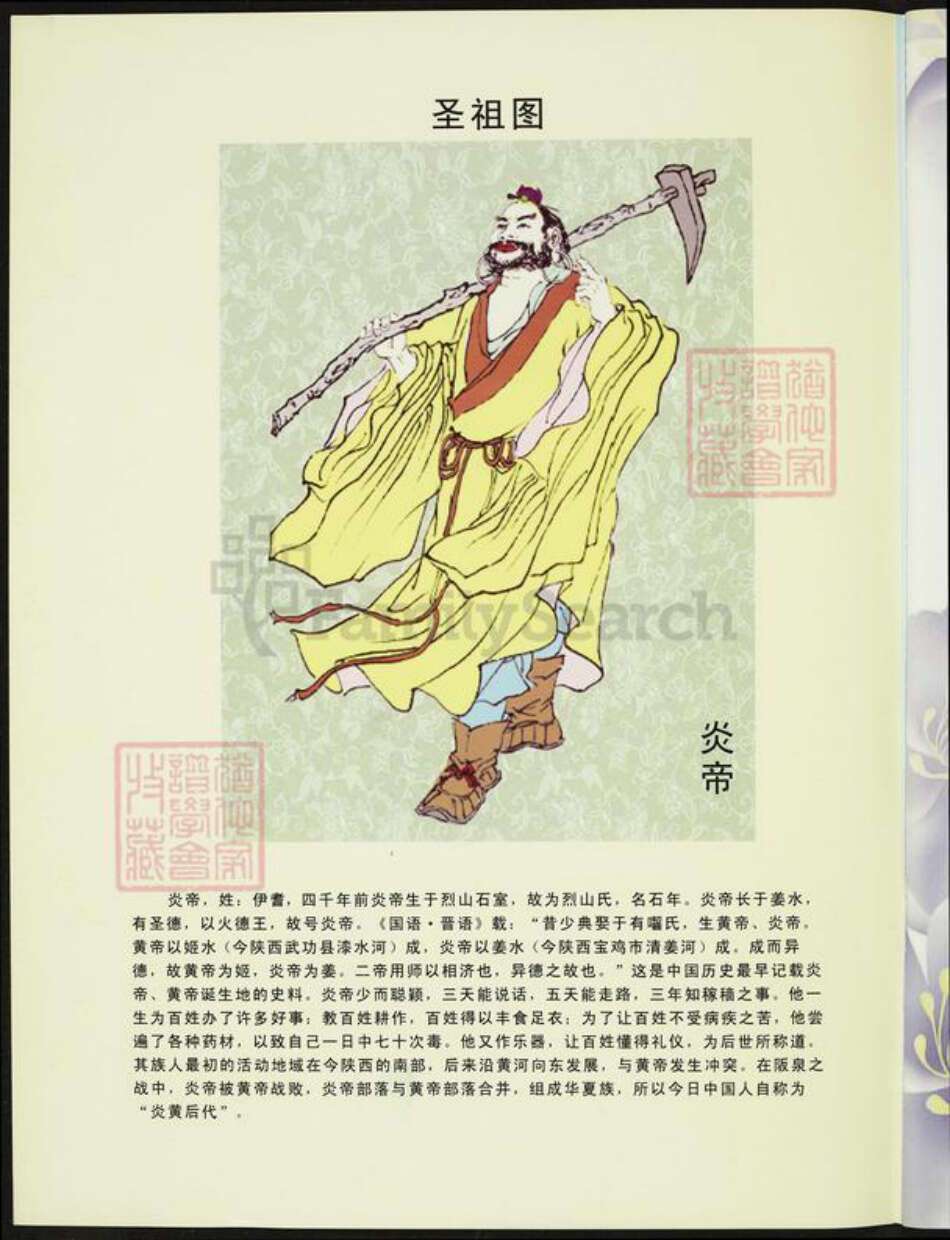 圣祖图
猶他家
譜學會
收藏
FamilySearch
炎帝
猶他家
譜學會
收藏
炎帝，姓：伊耆，四千年前炎帝生于烈山石室，故为烈山氏，名石年。炎帝长于姜水，
有圣德，以火德王，故号炎帝。《国语·晋语》载：“昔少典娶于有嚼氏，生黄帝、炎帝。
黄帝以姬水（今陕西武功县漆水河）成，炎帝以姜水（今陕西宝鸡市清姜河）成。成而异
德，故黄帝为姬，炎帝为姜。二帝用师以相济也，异德之故也。”这是中国历史最早记载炎
帝、黄帝诞生地的史料。炎帝少而聪颖，三天能说话，五天能走路，三年知稼穑之事。他一
生为百姓办了许多好事：教百姓耕作，百姓得以丰食足衣；为了让百姓不受病疾之苦，他尝
遍了各种药材，以致自己一日中七十次毒。他又作乐器，让百姓懂得礼仪，为后世所称道。
其族人最初的活动地域在今陕西的南部，后来沿黄河向东发展，与黄帝发生冲突。在阪泉之
战中，炎帝被黄帝战败，炎帝部落与黄帝部落合并，组成华夏族，所以今日中国人自称为
“炎黄后代”。